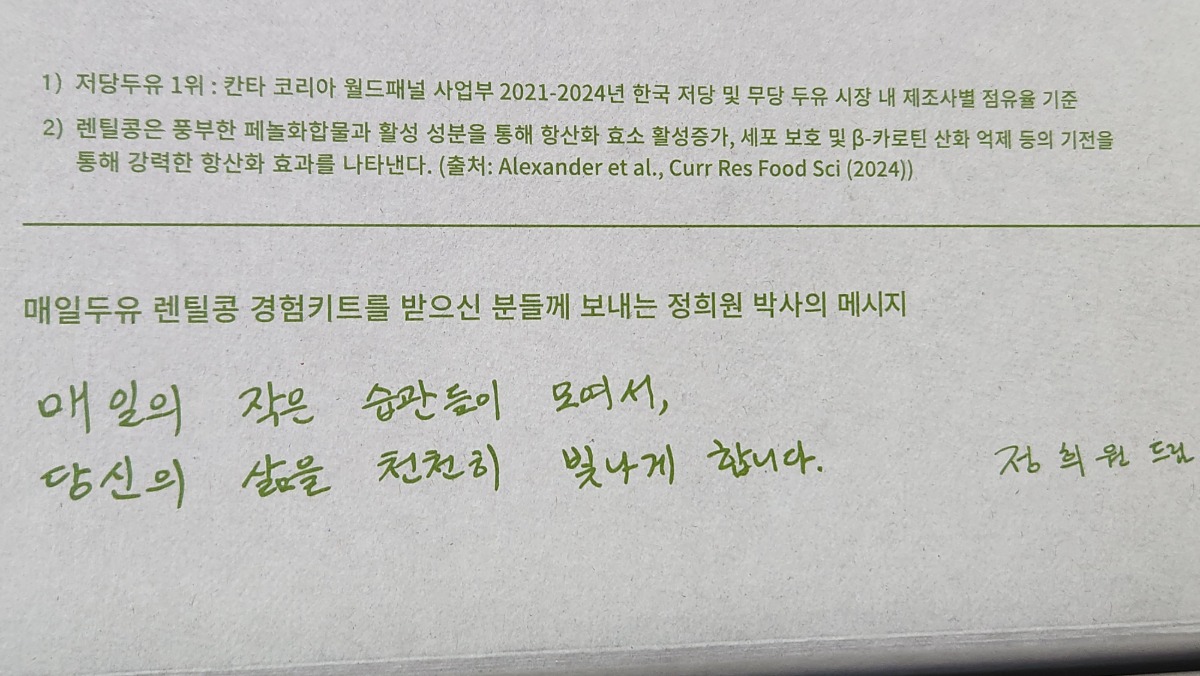 1) 저당두유 1위 : 칸타 코리아 월드패널 사업부 2021-2024년 한국 저당 및 무당 두유 시장 내 제조사별 점유율 기준
2) 렌틸콩은 풍부한 페놀화합물과 활성 성분을 통해 항산화 효소 활성증가, 세포 보호 및 β-카로틴 산화 억제 등의 기전을
통해 강력한 항산화 효과를 나타낸다. (출처: Alexander et al., Curr Res Food Sci (2024))
매일두유 렌틸콩 경험키트를 받으신 분들께 보내는 정희원 박사의 메시지
매일의 작은 습관들이 모여서,
당신의 삶을 천천히 빛나게 합니다.
정희원 드림